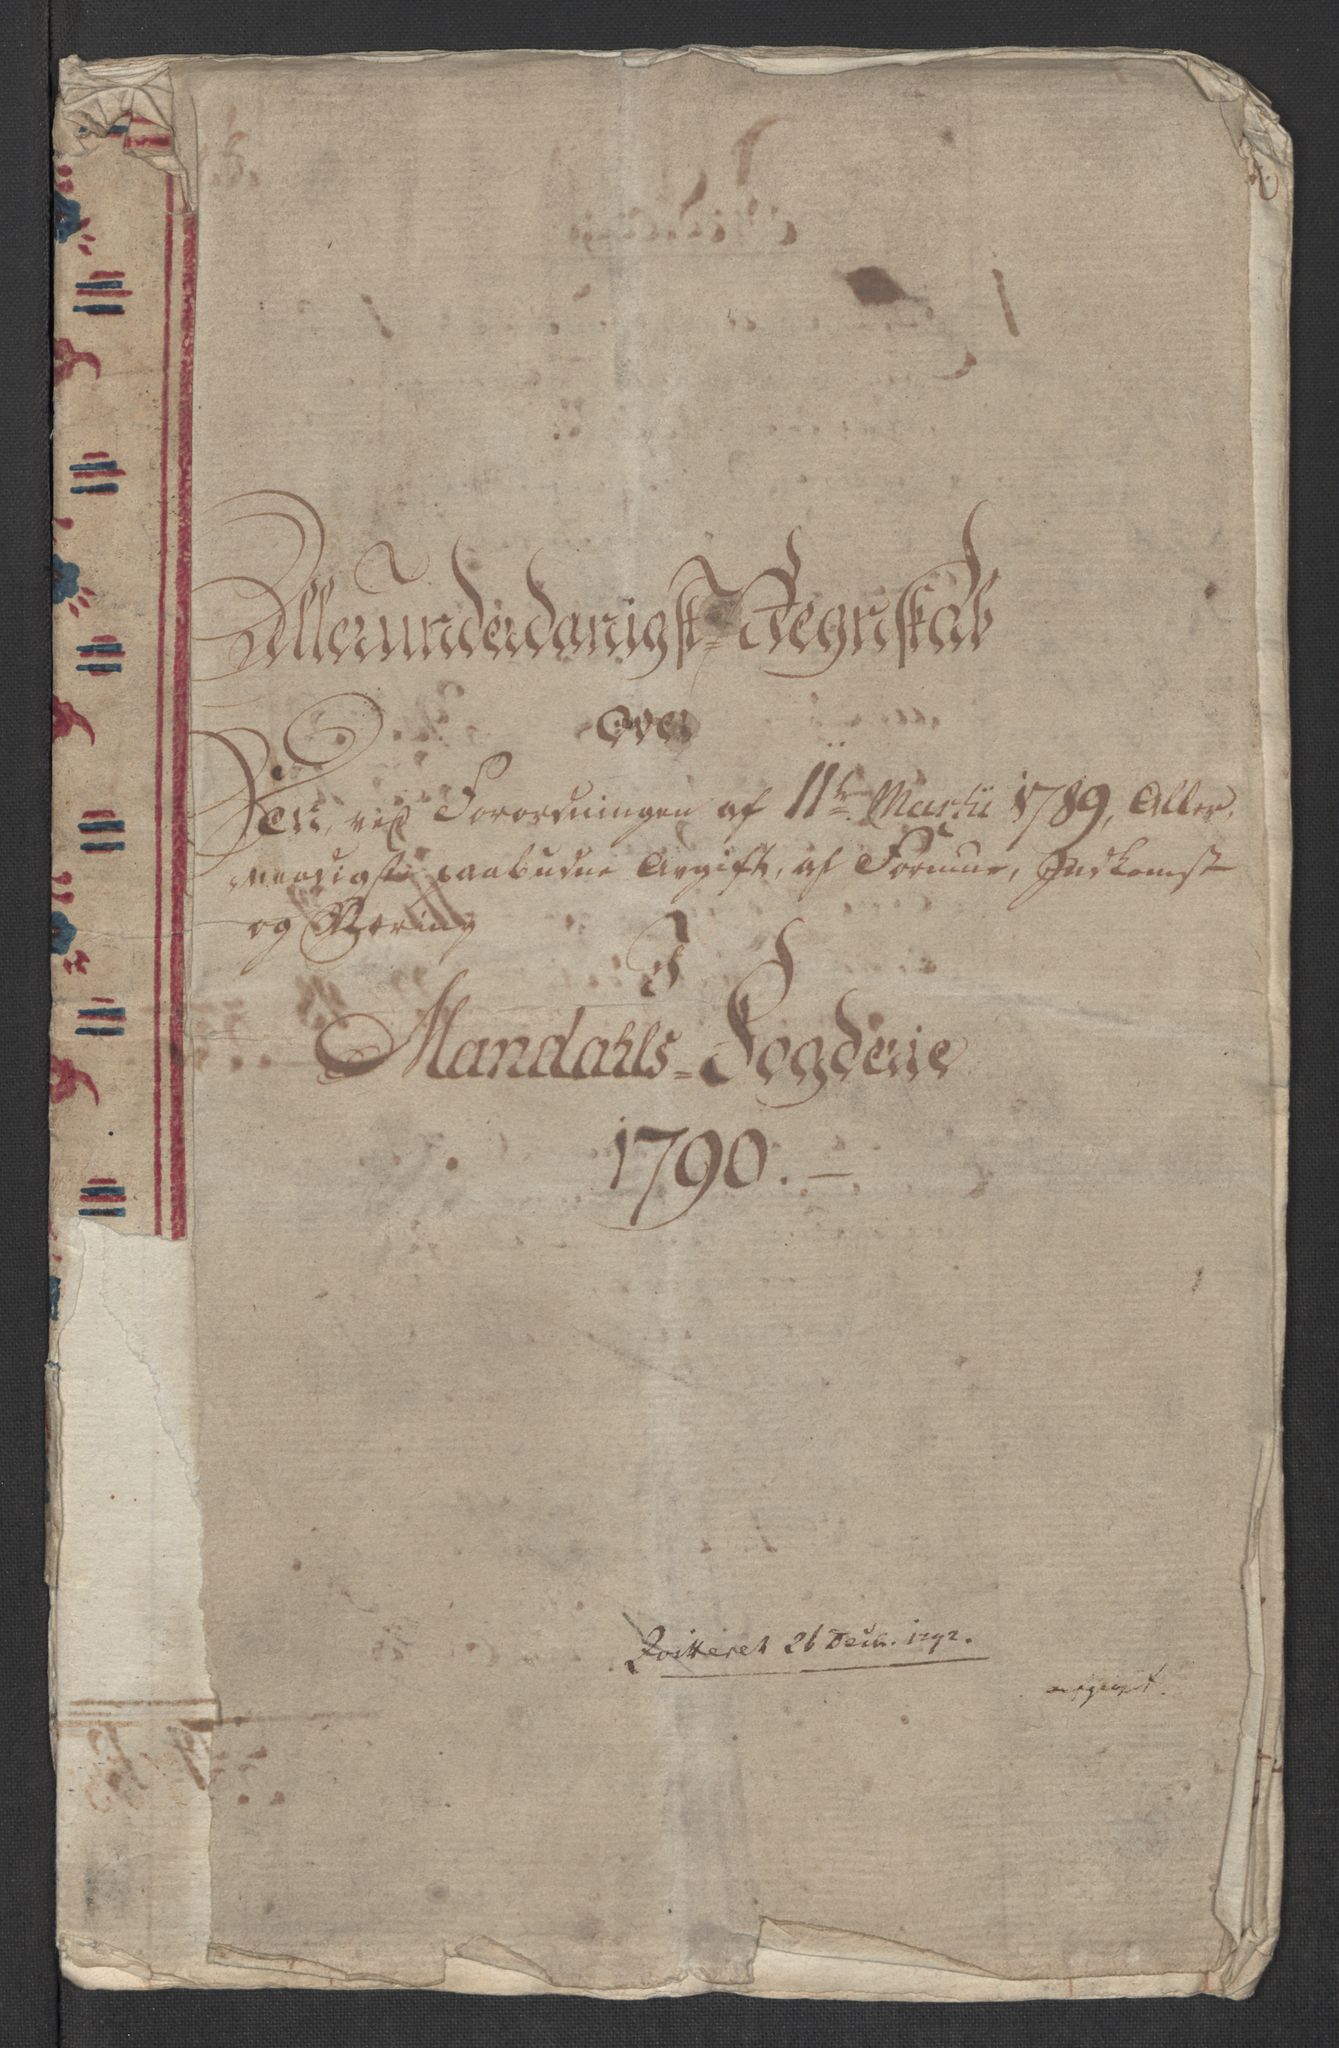 Allerunderdanigst Regnskab
Over
Den, ved Forordningen af 11te Martii 1789, Aller,
naadigste paabudne Avgift, af Formue, Indkomst
og Næring
I
Mandahls Fogderie
1790.
Qvitteret 26 Decb. 1792.